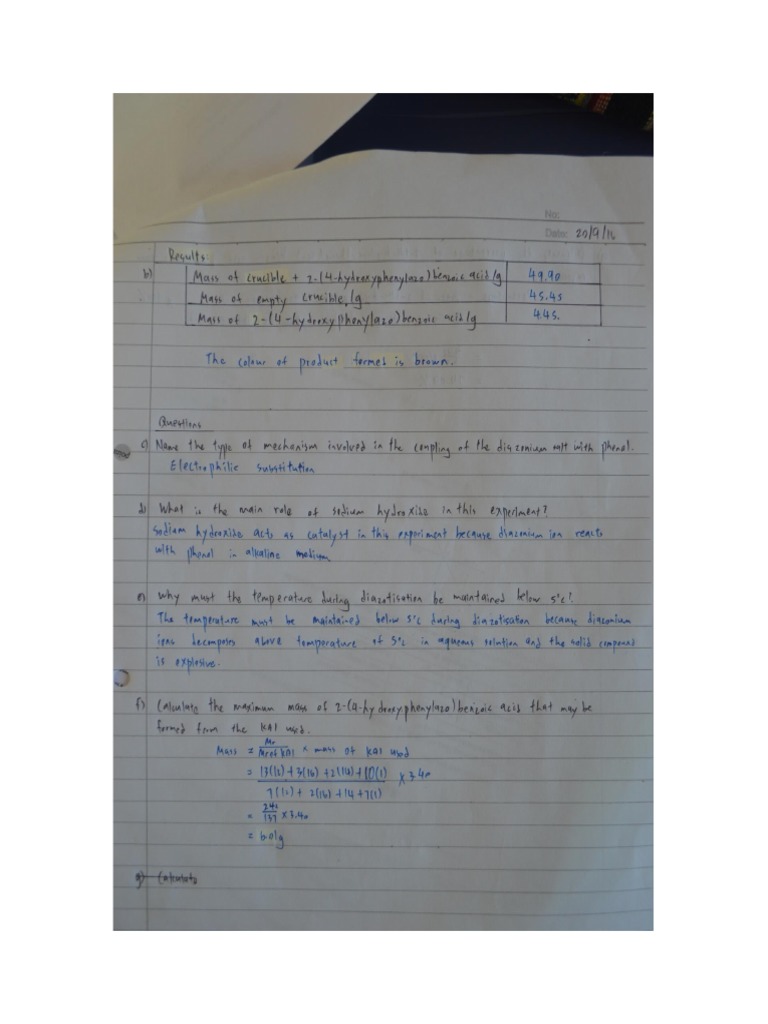 No:
Date: 20/9/16
Results:
b) Mass of crucible + 2-(4-hydroxyphenylazo)benzoic acid/g 49.90
Mass of empty crucible/g 45.45
Mass of 2-(4-hydroxyphenylazo)benzoic acid/g 4.45.
The colour of product formed is brown.
Questions
c) Name the type of mechanism involved in the coupling of the diazonium salt with phenol.
Electrophilic substitution
d) What is the main role of sodium hydroxide in this experiment?
Sodium hydroxide acts as catalyst in this experiment because diazonium ion reacts
with phenol in alkaline medium.
e) Why must the temperature during diazotisation be maintained below 5°C?
The temperature must be maintained below 5°C during diazotisation because diazonium
ions decomposes above temperature of 5°C in aqueous solution and the solid compound
is explosive.
f) Calculate the maximum mass of 2-(4-hydroxyphenylazo)benzoic acid that may be
formed from the KA1 used.
Mass = Mr / Mr of KA1 × mass of KA1 used
= 13(12)+3(16)+2(14)+10(1) / 7(12)+2(16)+14+7(1) × 3.40
= 242/137 × 3.40
= 6.01g
g) Calculate